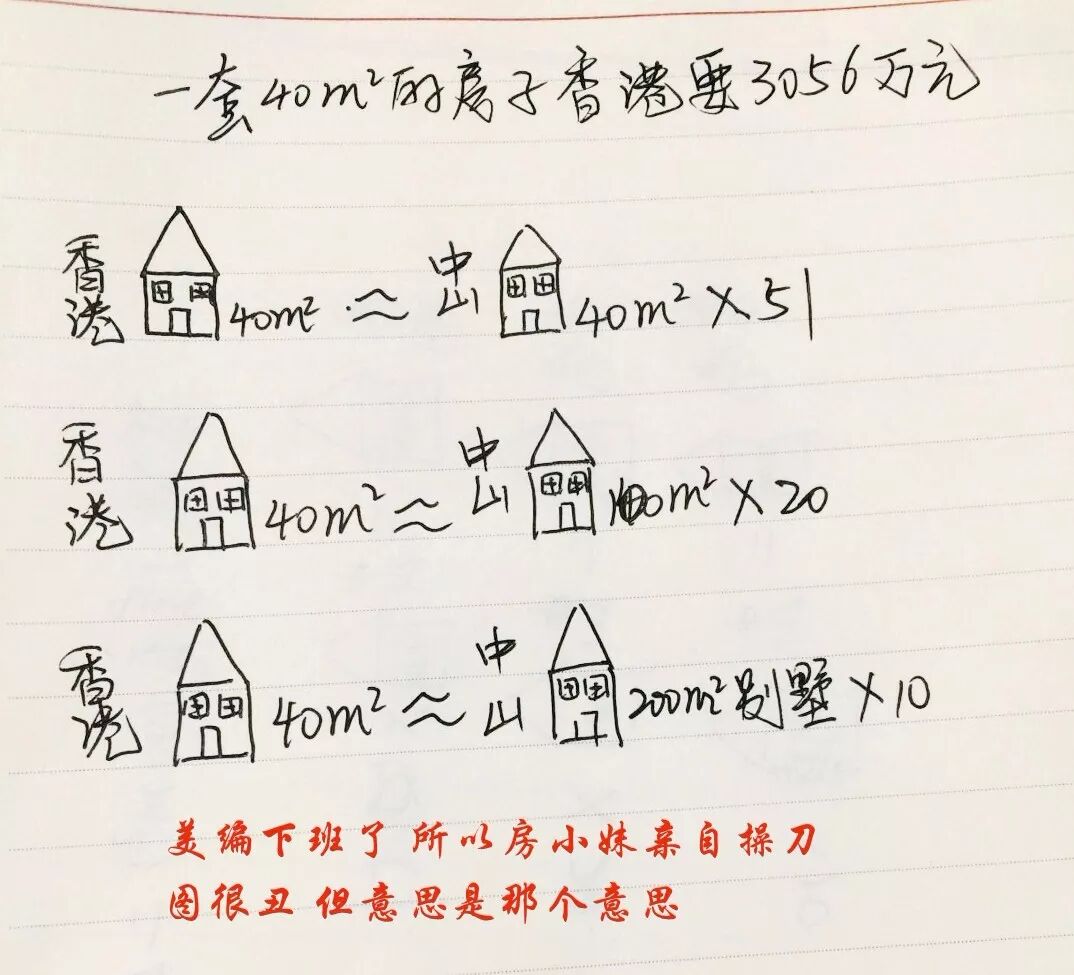 一套40m²的房子香港要3056万元
香港 40m² ≈ 中山 40m² × 51
香港 40m² ≈ 中山 100m² × 20
香港 40m² ≈ 中山 200m²别墅 × 10
美编下班了 所以房小妹亲自操刀
图很丑 但意思是那个意思